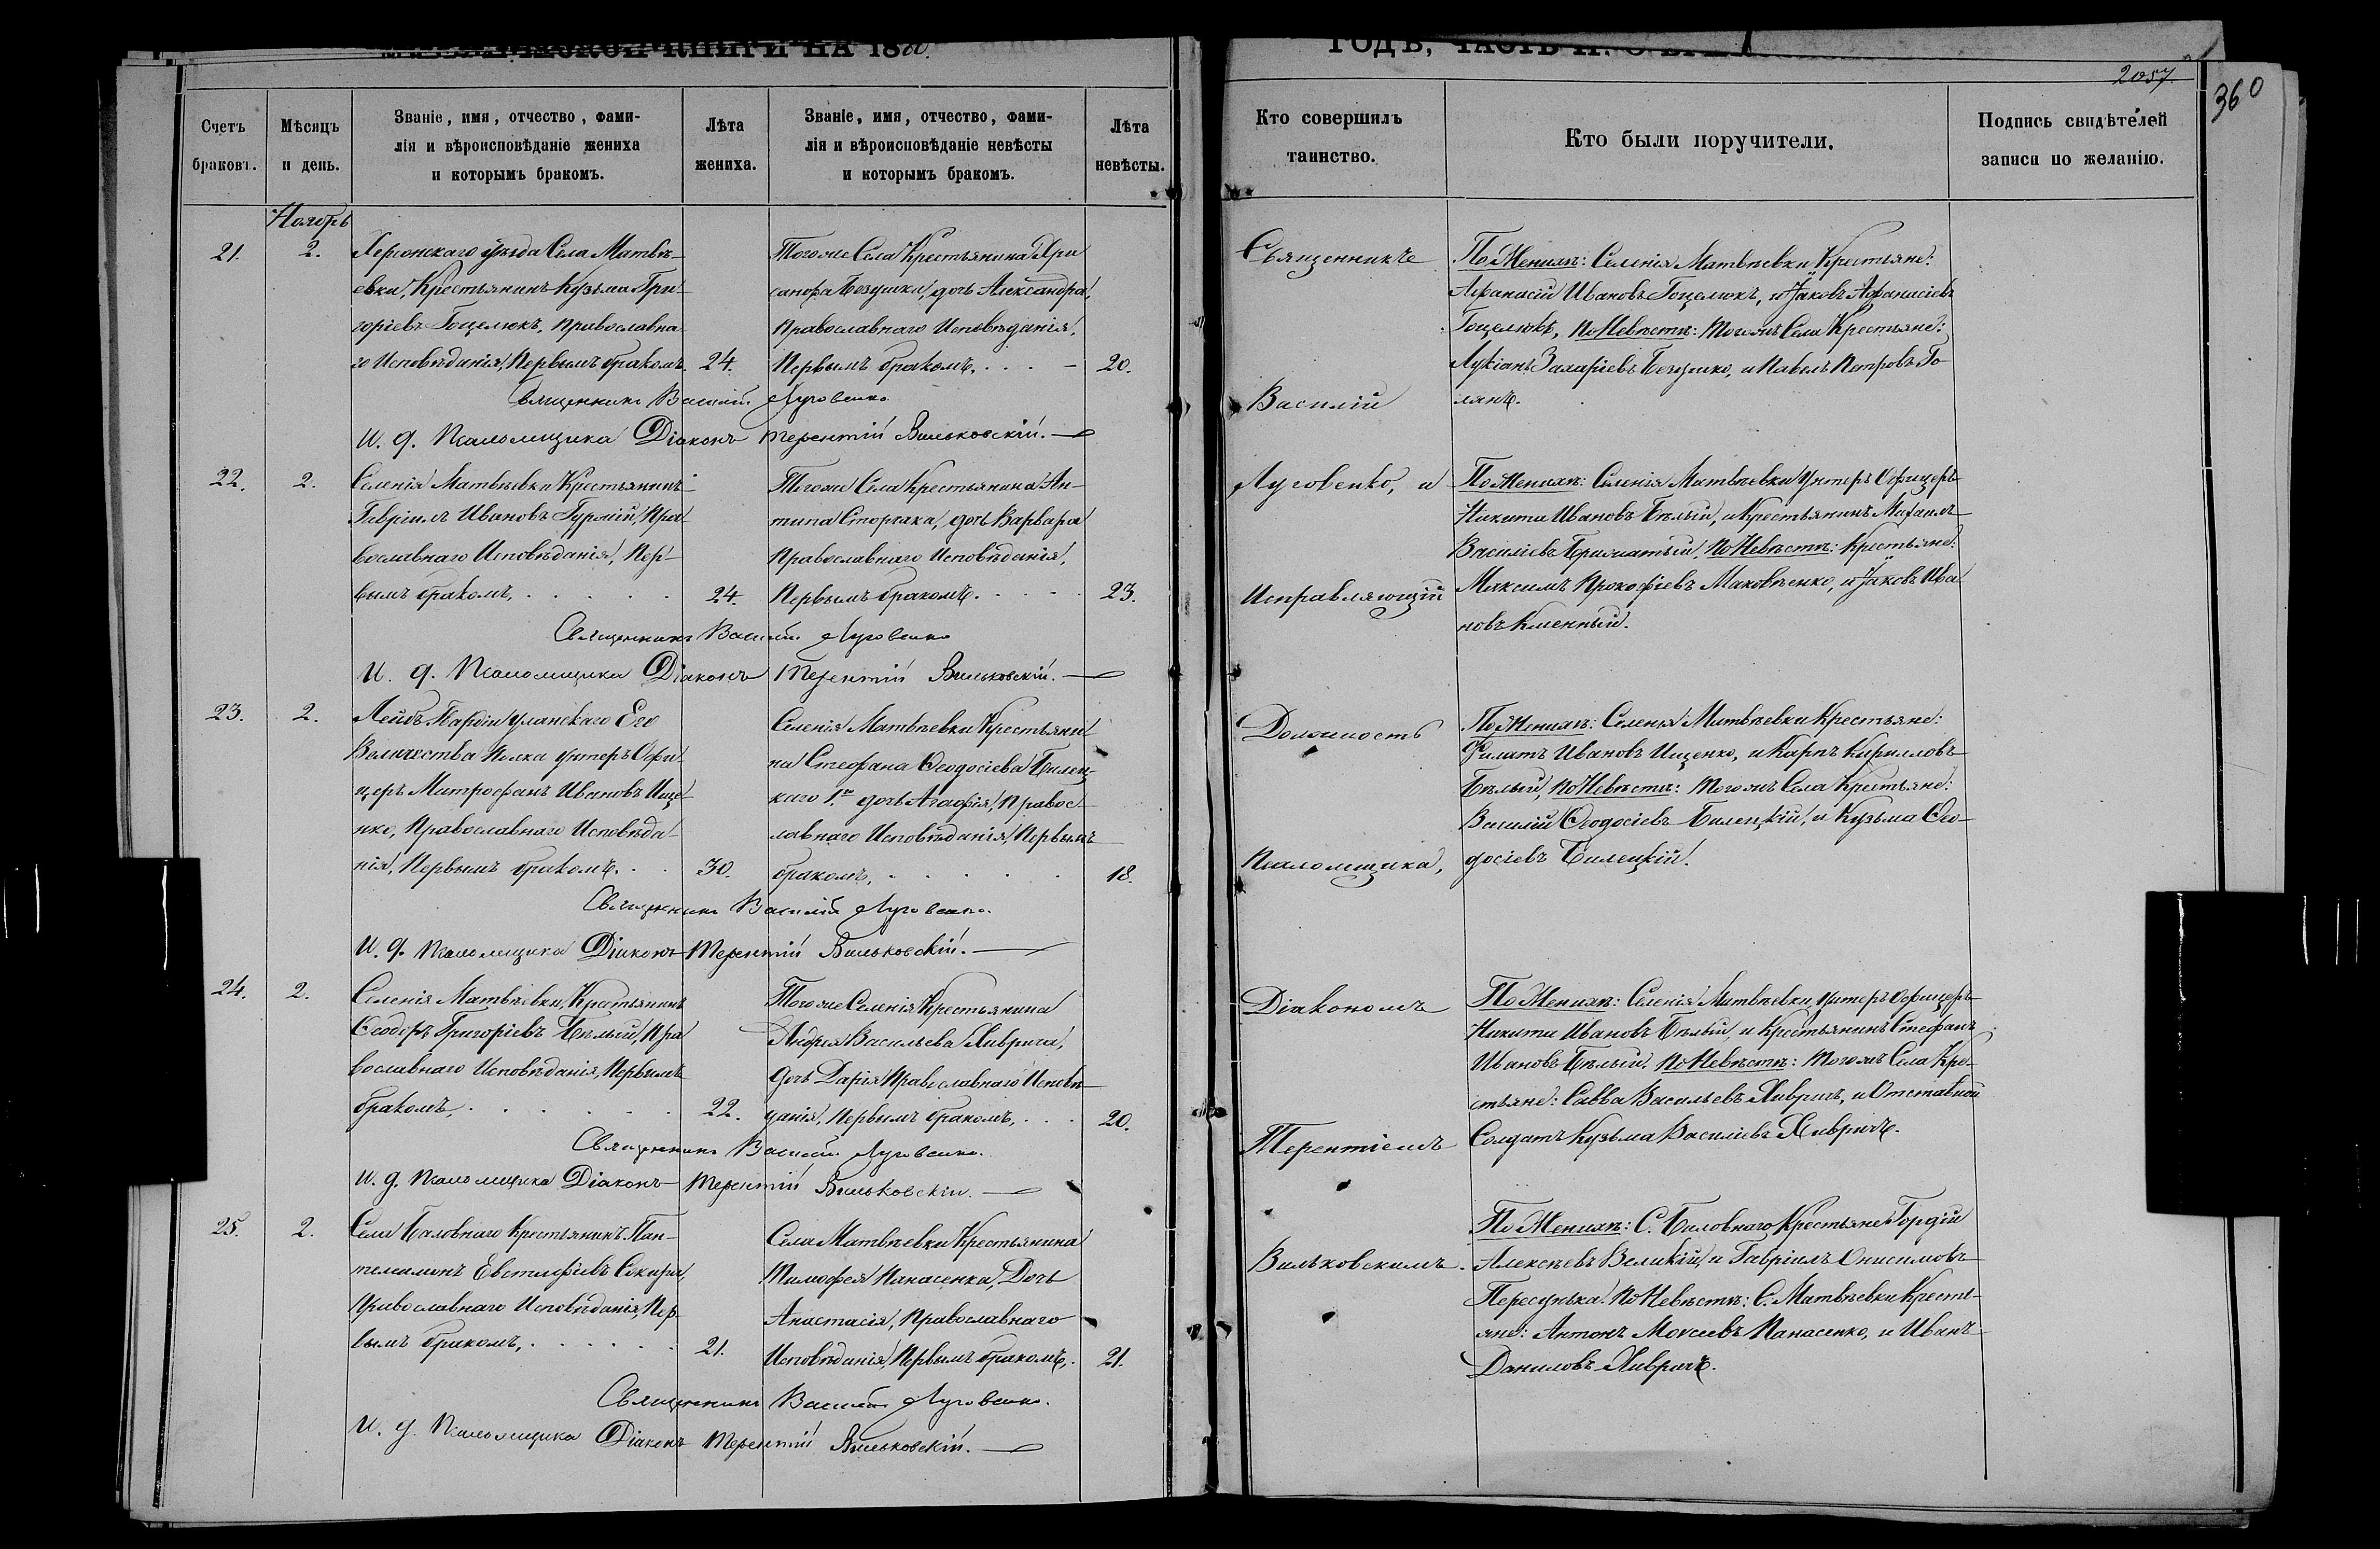 КНИГИ НА 1880
ГОДЪ, ЧАСТЬ
2057.
360
Счетъ браковъ.
Мѣсяцъ и день.
Званіе, имя, отчество, фами-
лія и вѣроисповѣданіе жениха
и которымъ бракомъ.
Лѣта жениха.
Званіе, имя, отчество, фами-
лія и вѣроисповѣданіе невѣсты
и которымъ бракомъ.
Лѣта невѣсты.
Кто совершилъ
таинство.
Кто были поручители.
Подпись свидѣтелей
записи по желанію.
Ноябрь
21.
2.
Херсонскаго уѣзда Села Матвѣ-
евки, Крестьянинъ Кузьма Гри-
горіевъ Гоцелюкъ, Православна-
го Исповѣданія, Первымъ бракомъ
24.
Тогоже Села Крестьянина Хри
санфа Бездушки, дочь Александра,
Православнаго Исповѣданія,
Первымъ бракомъ.
20.
Священникъ Василій Луговенко
И. д. Псаломщика Діаконъ Терентій Вильковскій.
22.
2.
Селенія Матвѣевки Крестьянинъ
Гавріилъ Ивановъ Пра
вославнаго Исповѣданія, Пер-
вымъ бракомъ,
24.
Тогоже Села Крестьянина Ан-
типа дочь Варвара
Православнаго Исповѣданія,
Первымъ бракомъ.
23.
Священникъ Василій Луговенко
И. д. Псаломщика Діаконъ Терентій Вильковскій.
23.
2.
Лейбъ Гвардіи Уланскаго Его
Величества Полка Унтеръ Офи-
церъ Митрофанъ Ивановъ Ище-
нко, Православнаго Исповѣда-
нія, Первымъ бракомъ.
30.
Селенія Матвѣевки Крестьяни
на Стефана Ѳеодосіева Билец-
каго 1го дочь Агафія, Правос-
лавнаго Исповѣданія, Первымъ
бракомъ,
18.
Священникъ Василій Луговенко.
И. д. Псаломщика Діаконъ Терентій Вильковскій.
24.
2.
Селенія Матвѣевки, Крестьянинъ
Ѳеодоръ Григоріевъ Бѣлый, Пра
вославнаго Исповѣданія, Первымъ
бракомъ,
22.
Тогоже Селенія Крестьянина
Андрея Васильева Хиврича,
дочь Дарія Православнаго Исповѣ-
данія, Первымъ бракомъ,
20.
Священникъ Василій Луговенко.
И. д. Псаломщика Діаконъ Терентій Вильковскій.
25.
2.
Села Баловнаго Крестьянинъ Пан-
телеимонъ Евстафіевъ Сокира,
Православнаго Исповѣданія, Пер-
вымъ бракомъ,
21.
Села Матвѣевки Крестьянина
Тимофея Панасенка, Дочь
Анастасія, Православнаго
Исповѣданія, Первымъ бракомъ,
21.
Священникъ Василій Луговенко.
И. д. Псаломщика Діаконъ Терентій Вильковскій.
Священникъ
Василій
Луговенко, и
Исправляющій
Должность
Псаломщика,
Діакономъ
Терентіемъ
Вильковскимъ.
По Женихѣ: Селенія Матвѣевки Крестьяне:
Афанасій Ивановъ Гоцелюкъ, и Яковъ Афанасіевъ
Гоцелюкъ, По Невѣстѣ: Тогожъ Села Крестьяне:
Лукіанъ Захаріевъ Бездушко, и Павелъ Петровъ Го
лянъ.
По Женихѣ: Селенія Матвѣевки Унтеръ Офицеръ
Никита Ивановъ Бѣлый, и Крестьянинъ Михаилъ
Василіевъ По Невѣстѣ: Крестьяне:
Максимъ Прокофіевъ Маковѣенко, и Яковъ Ива
новъ Клиенный.
По Женихѣ: Селенія Матвѣевки Крестьяне:
Филатъ Ивановъ Ищенко, и Карпъ Кирилловъ
Бѣлый, По Невѣстѣ: Тогожъ Села Крестьяне:
Василій Ѳеодосіевъ Билецкій, и Кузьма Ѳео-
досіевъ Билецкій.
По Женихѣ: Селенія Матвѣевки, Унтеръ Офицеръ
Никита Ивановъ Бѣлый, и Крестьянинъ Стефанъ
Ивановъ Бѣлый. По Невѣстѣ: Тогожъ Села Кре-
стьяне: Савва Васильевъ Хивричъ, и Отставной
Солдатъ Кузьма Василіевъ Хивричъ.
По Женихѣ: С. Баловнаго Крестьяне Гордій
Алексѣевъ Великій, и Гавріилъ Онисимовъ
Пересунька. По Невѣстѣ: С. Матвѣевки Кресть-
яне: Антонъ Моисеевъ Панасенко, и Иванъ
Даниловъ Хивричъ.